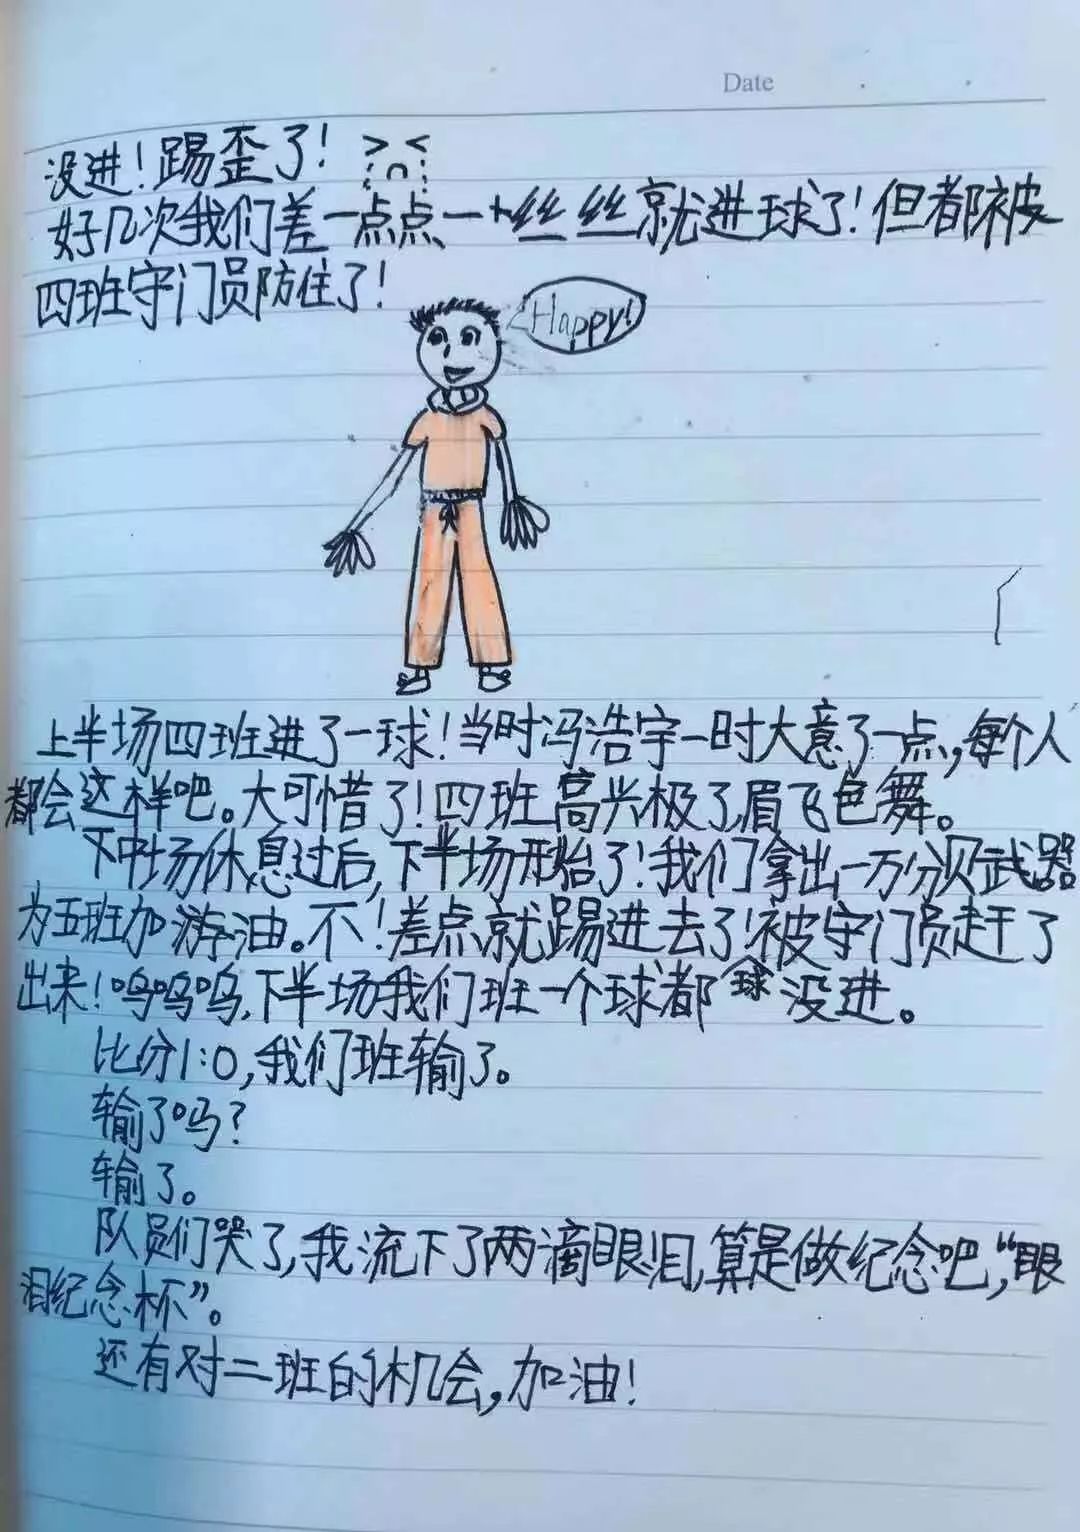 Date
没进！踢歪了！
好几次我们差一点点一丝丝就进球了！但都被
四班守门员防住了！
Happy!
上半场四班进了一球！当时冯浩宇一时大意了一点，每个人
都会这样吧。大可惜了！四班高兴极了，眉飞色舞。
下中场休息过后，下半场开始了！我们拿出一万分贝武器
为五班加游油。不！差点就踢进去了！被守门员赶了
出来！呜呜呜，下半场我们班一个球都球没进。
比分1:0，我们班输了。
输了吗？
输了。
队员们哭了，我流下了两滴眼泪，算是做纪念吧，“眼
泪纪念杯”。
还有对二班的机会，加油！